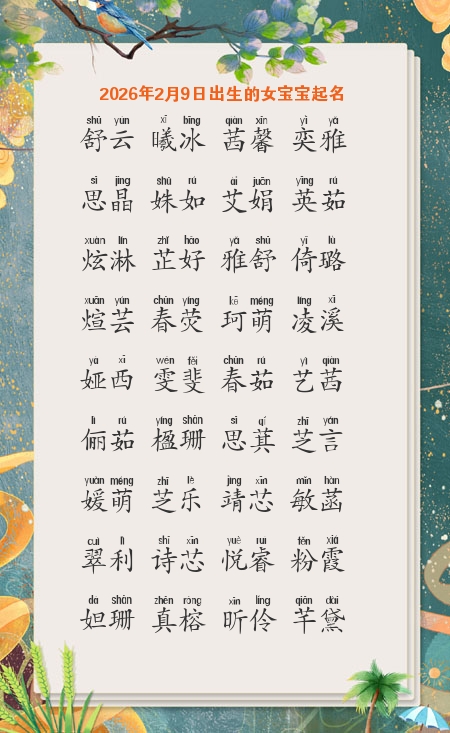 2026年2月9日出生的女宝宝起名
shū yún xī bīng qiàn xīn yì yǎ
舒云 曦冰 茜馨 奕雅
sī jīng shū rú ài juān yīng rú
思晶 姝如 艾娟 英茹
xuàn lín zhǐ hǎo yǎ shū yǐ lù
炫淋 芷好 雅舒 倚璐
xuān yún chūn yíng kē méng líng xī
煊芸 春荧 珂萌 凌溪
yà xī wén fěi chūn rú yì qiàn
娅西 雯斐 春茹 艺茜
lì rú yíng shān sī qí zhī yán
俪茹 楹珊 思萁 芝言
yuàn méng zhī lè jìng xīn mǐn hàn
媛萌 芝乐 靖芯 敏菡
cuì lì shī xīn yuè ruì fěn xiá
翠利 诗芯 悦睿 粉霞
dá shān zhēn róng xīn líng qiān dài
妲珊 真榕 昕伶 芊黛